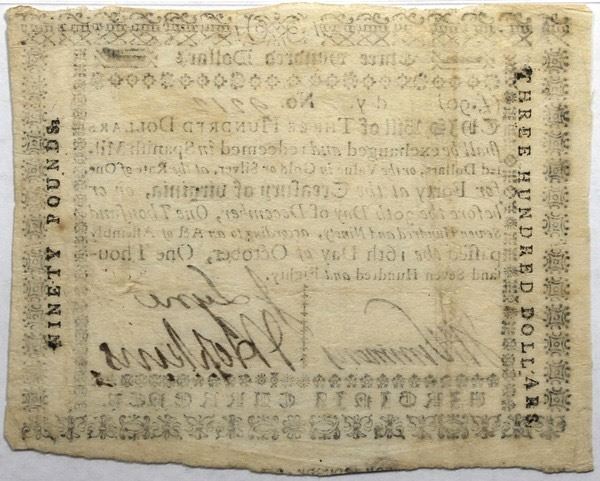 NINETY POUNDS.
Three Hundred Dollars
(£.90) No.
THIS Bill of THREE HUNDRED DOLLARS
shall be exchanged and redeemed in Spanish Mil-
led Dollars, or the Value in Gold or Silver, at the Rate of One
for Forty at the Treasury of Virginia, on or
before the 30th Day of December, One Thousand
Seven Hundred and Ninety, according to an Act of
passed the 16th Day of October, One Thou-
sand Seven Hundred and Eighty.
Lyne
J Hopkins
VIRGINIA CURRENCY.
THREE HUNDRED DOLLARS.